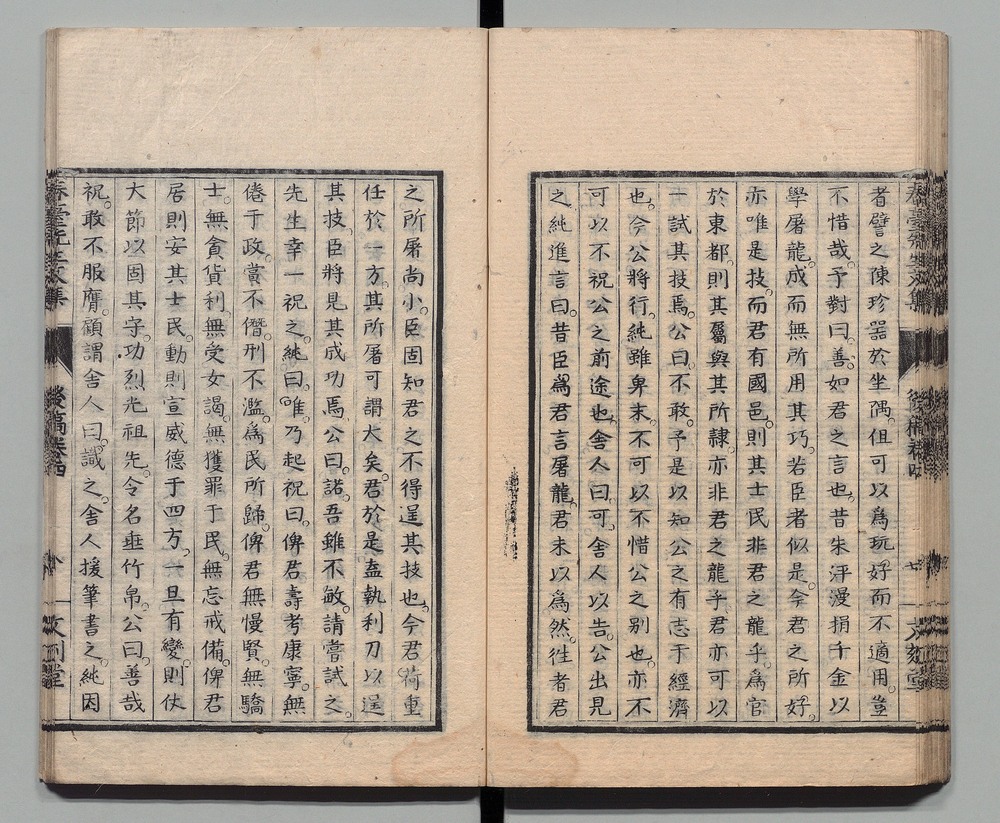 者譬之陳珍器於坐隅。但可以爲玩好而不適用。豈
不惜哉。予對曰。善。如君之言也。昔朱泙漫捐千金以
學屠龍。成而無所用其巧。若臣者似是。今君之所好。
亦唯是技。而君有國邑。則其士民非君之龍乎。爲官
於東都。則其屬與其所隷。亦非君之龍乎。君亦可以
一試其技焉。公曰。不敢。予是以知公之有志于經濟
也。今公將行。純雖卑末。不可以不惜公之別也。亦不
可以不祝公之前途也。舍人曰。可。舍人以告。公出見
之。純進言曰。昔臣爲君言屠龍。君未以爲然。徃者君
之所屠尚小。臣固知君之不得逞其技也。今君荷重
任於一方。其所屠可謂大矣。君於是盍執利刀以逞
其技。臣將見其成功焉。公曰。諾。吾雖不敏。請嘗試之。
先生幸一祝之。純曰。唯。乃起祝曰。俾君壽考康寧。無
倦于政。賞不僭。刑不濫。爲民所歸。俾君無慢賢。無驕
士。無貪貨利。無受女謁。無獲罪于民。無忘戒備。俾君
居則安其士民。動則宣威德于四方。一旦有變。則仗
大節以固其守。功烈光祖先。令名垂竹帛。公曰。善哉
祝。敢不服膺。顧謂舍人曰。識之。舍人援筆書之。純因
春臺先生文集
後稿卷四